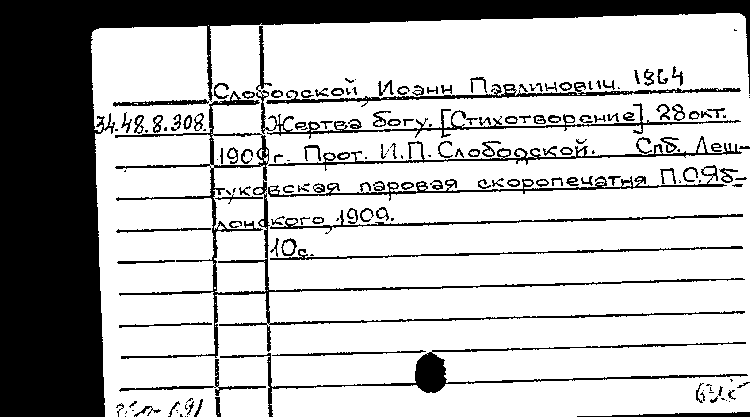 Слободской, Иоанн Павлинович. 1864
34.48.8.308. Жертва богу. [Стихотворение]. 28 окт.
1909 г. Прот. И.П. Слободской. Спб. Леш-
туковская паровая скоропечатня П.О.Яб-
лонского, 1909.
10 с.